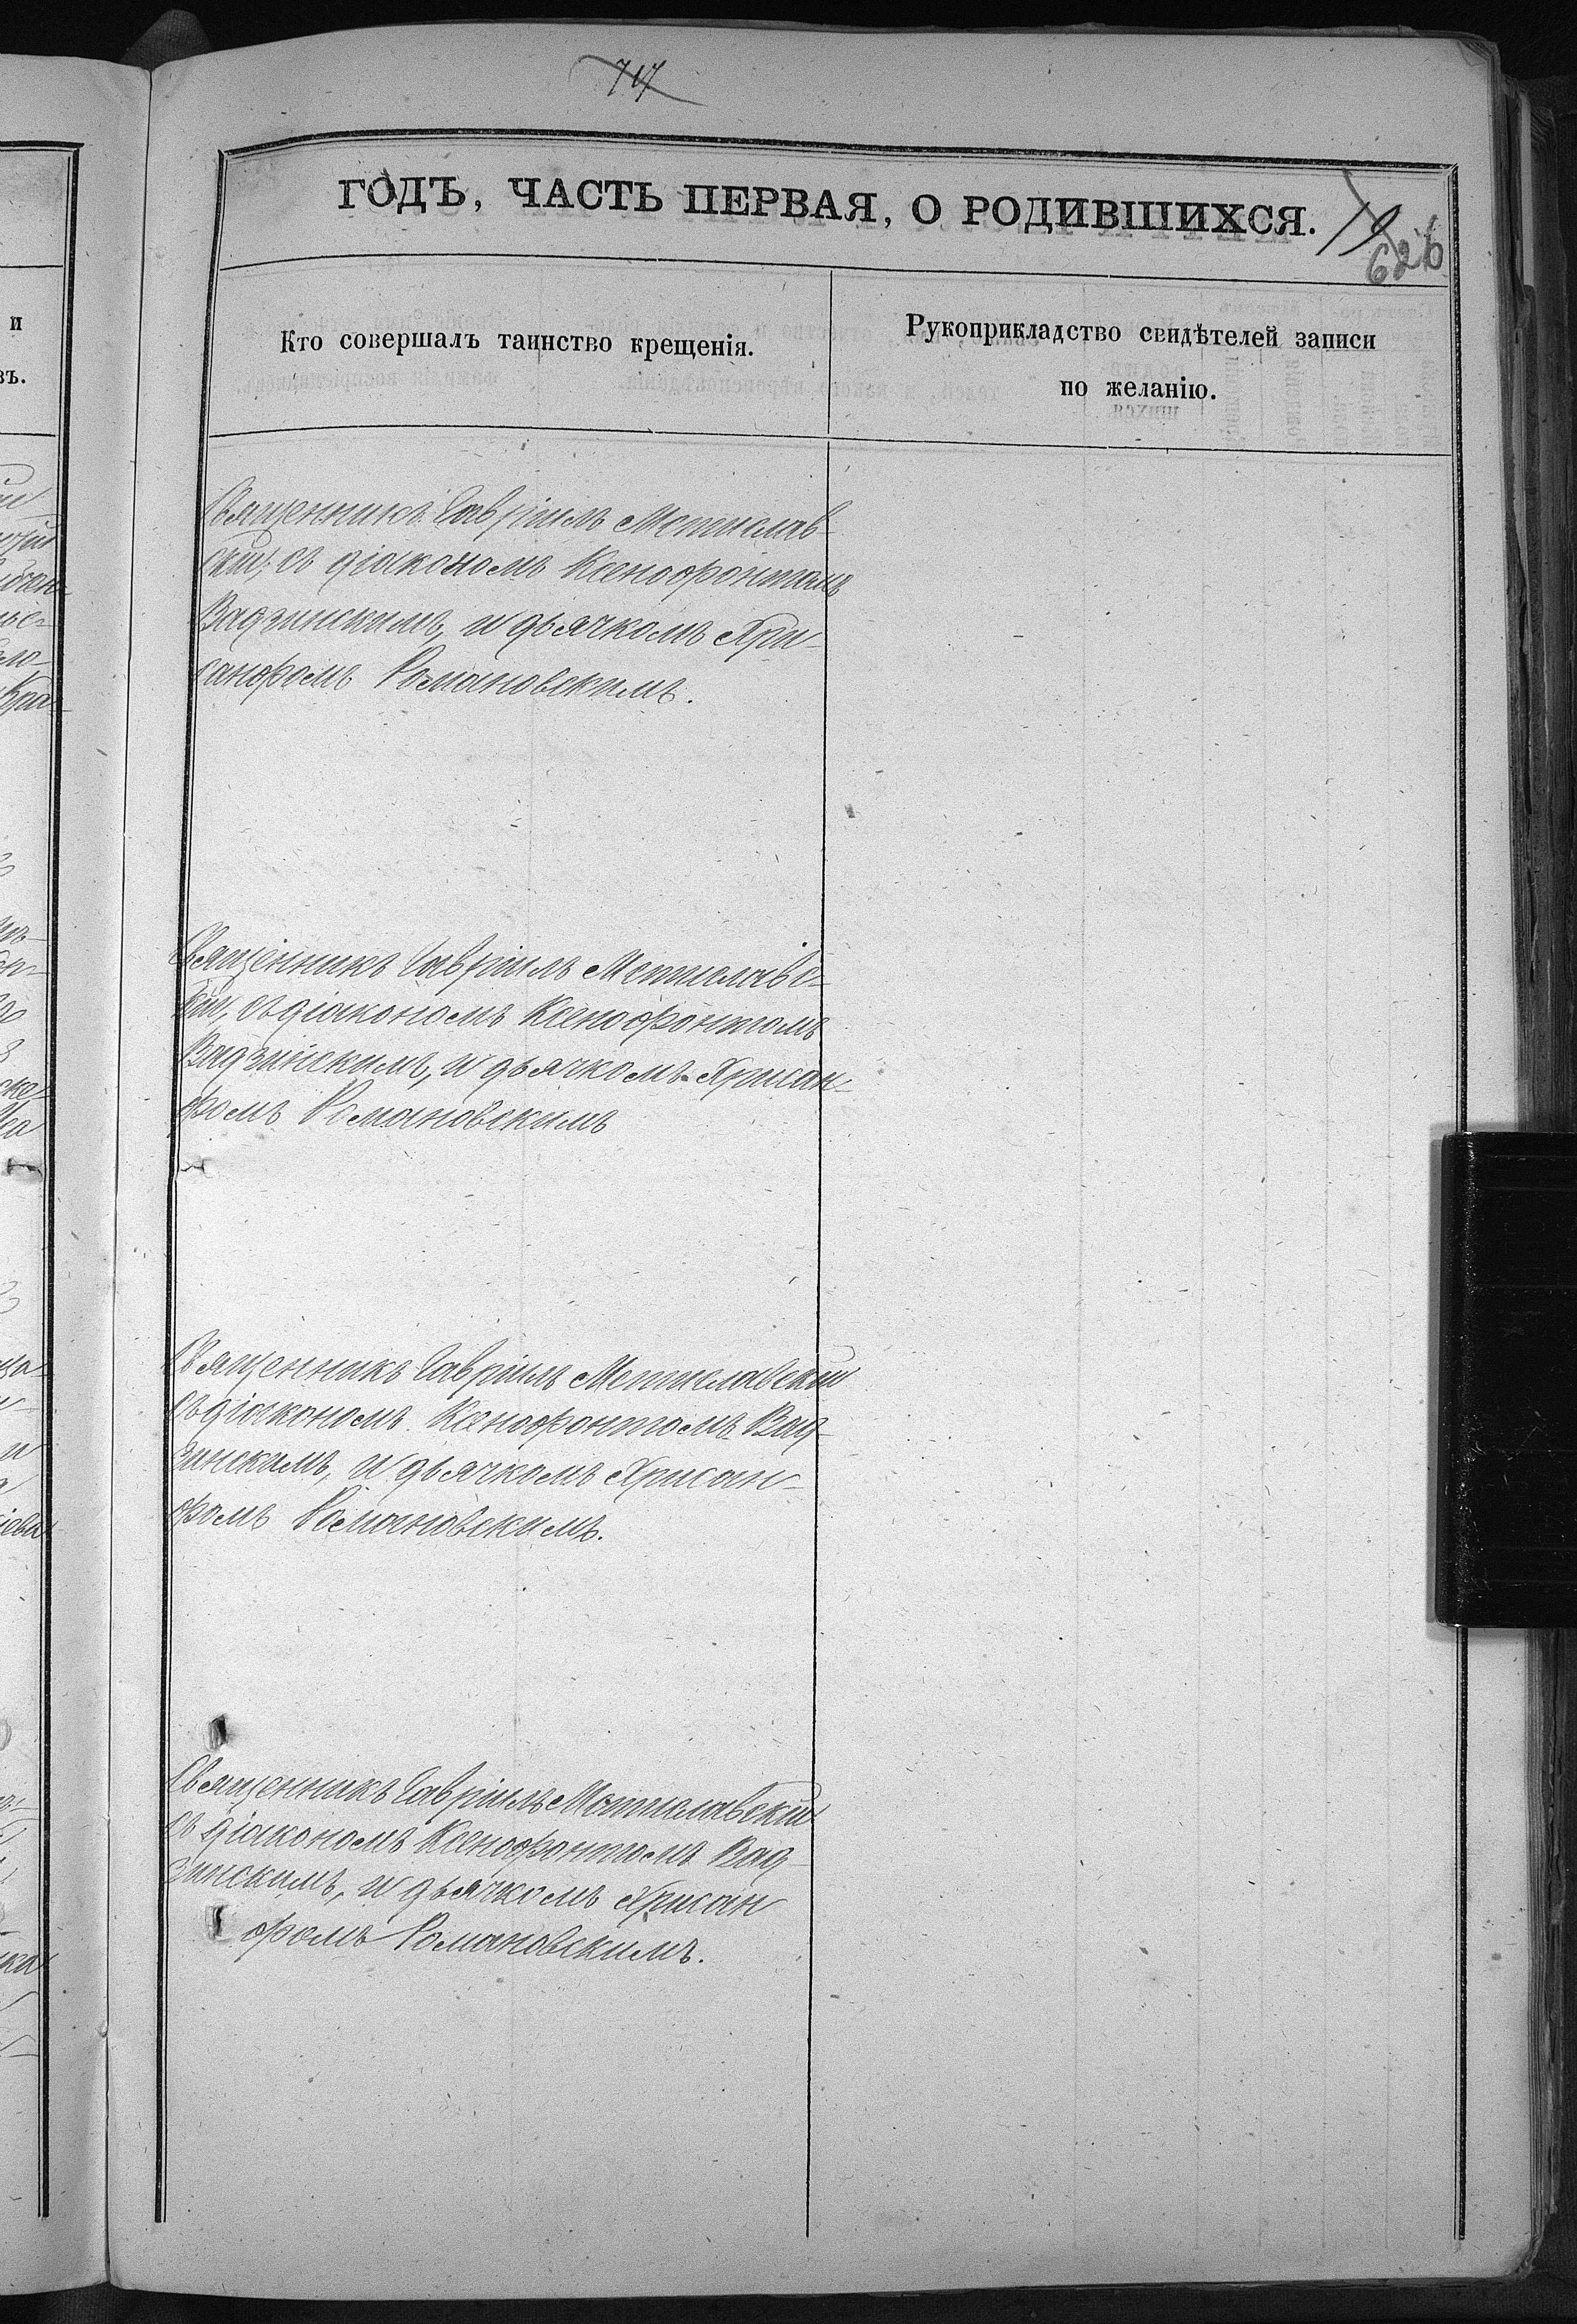 717
ГОДЪ, ЧАСТЬ ПЕРВАЯ, О РОДИВШИХСЯ.
626
Кто совершалъ таинство крещенія.
Рукоприкладство свидѣтелей записи
по желанію.
Священникъ Гавріилъ Мстислав-
скій, съ діакономъ Ксенофонтомъ
Вадзинскимъ, и дьячкомъ Хри-
санфомъ Романовскимъ.
Священникъ Гавріилъ Мстиславс-
кій, съ діакономъ Ксенофонтомъ
Вадзинскимъ, и дьячкомъ Хрисан-
фомъ Романовскимъ
Священникъ Гавріилъ Мстиславскій
съ діакономъ Ксенофонтомъ Вад-
зинскимъ, и дьячкомъ Хрисан-
фомъ Романовскимъ.
Священникъ Гавріилъ Мстиславскій
съ діакономъ Ксенофонтомъ Вад-
зинскимъ, и дьячкомъ Хрисан
фомъ Романовскимъ.